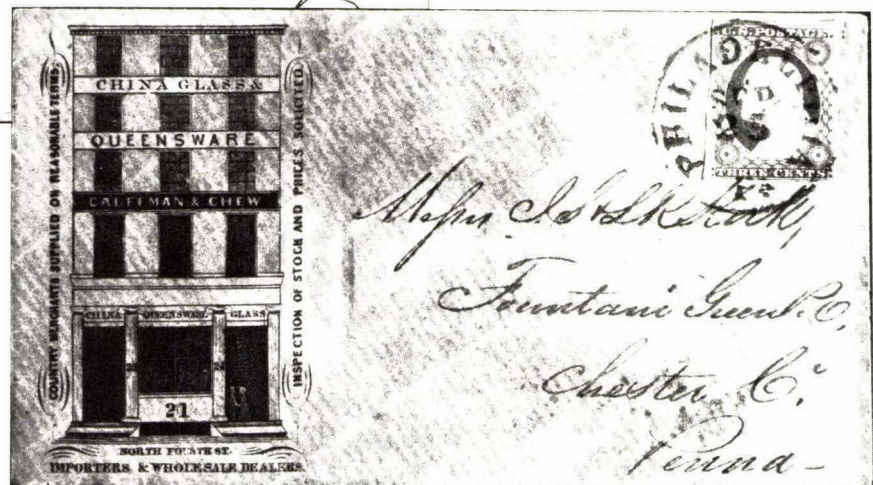 COUNTRY MERCHANTS SUPPLIED ON REASONABLE TERMS.
CHINA GLASS &
QUEENSWARE
CAUFFMAN & CHEW
CHINA QUEENSWARE GLASS
21
NORTH FOURTH ST.
IMPORTERS & WHOLESALE DEALERS
INSPECTION OF STOCK AND PRICES SOLICITED.
U.S. POSTAGE.
PHILADELPHIA
THREE CENTS
Messrs
Fountain Green P.O.
Chester Co.
Penna